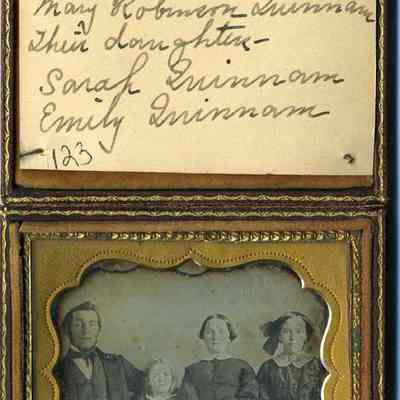 Mary Robinson Quinnam
Their daughters
Sarah Quinnam
Emily Quinnam
123